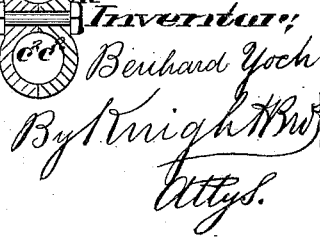 Inventor;
c² c²
Bernhard Yoch
By Knight Bros
Attys.